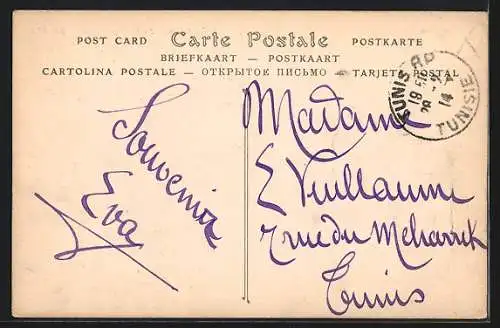 POST CARD Carte Postale POSTKARTE
BRIEFKAART — POSTKAART
CARTOLINA POSTALE — ОТКРЫТОЕ ПИСЬМО — TARJETA POSTAL
TUNIS RP
18
14
TUNISIE
Souvenir
Eva
Madame
E Vuillaume
7 rue du Mcharrek
Tunis